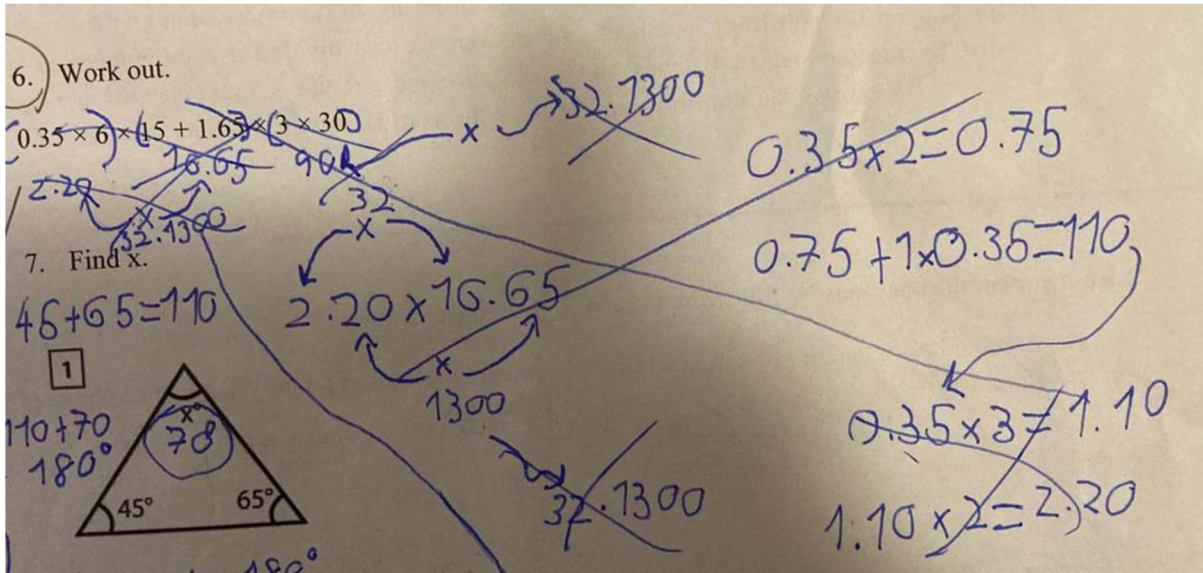 6. Work out.
0.35 × 6) × (15 + 1.65) × (3 × 30)
16.65 90
2.20
x
32.1300
x 32.1300
32
x
2.20 x 16.65
x
1300
32.1300
0.35x2=0.75
0.75+1x0.35=110
0.35x3=1.10
1.10x2=2.20
7. Find x.
45+65=110
1
110+70
180°
x°
70°
45°
65°
180°